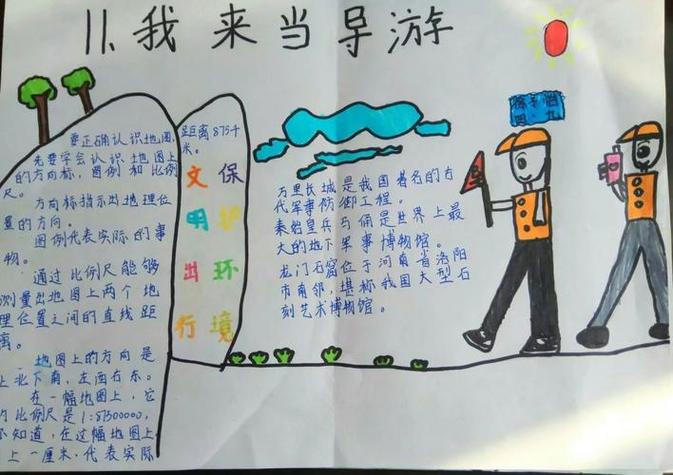 11.我来当导游
要正确认识地图,
先要学会认识地图上
的方向标,图例和比例
尺。
方向标指示出地理位
置的方向。
图例代表实际的事
物。
通过比例尺能够
测量出地图上两个地
理位置之间的直线距
离。
地图上的方向是
上北下南,左西右东。
在一幅地图上,它
的比例尺是1:87500000,
不知道,在这幅地图上
上一厘米.代表实际
距离875千
米。
文明出行
保护环境
万里长城是我国著名的古
代军事防御工程。
秦始皇兵马俑是世界上最
大的地下军事博物馆。
龙门石窟位于河南省洛阳
市南郊,堪称我国大型石
刻艺术博物馆。